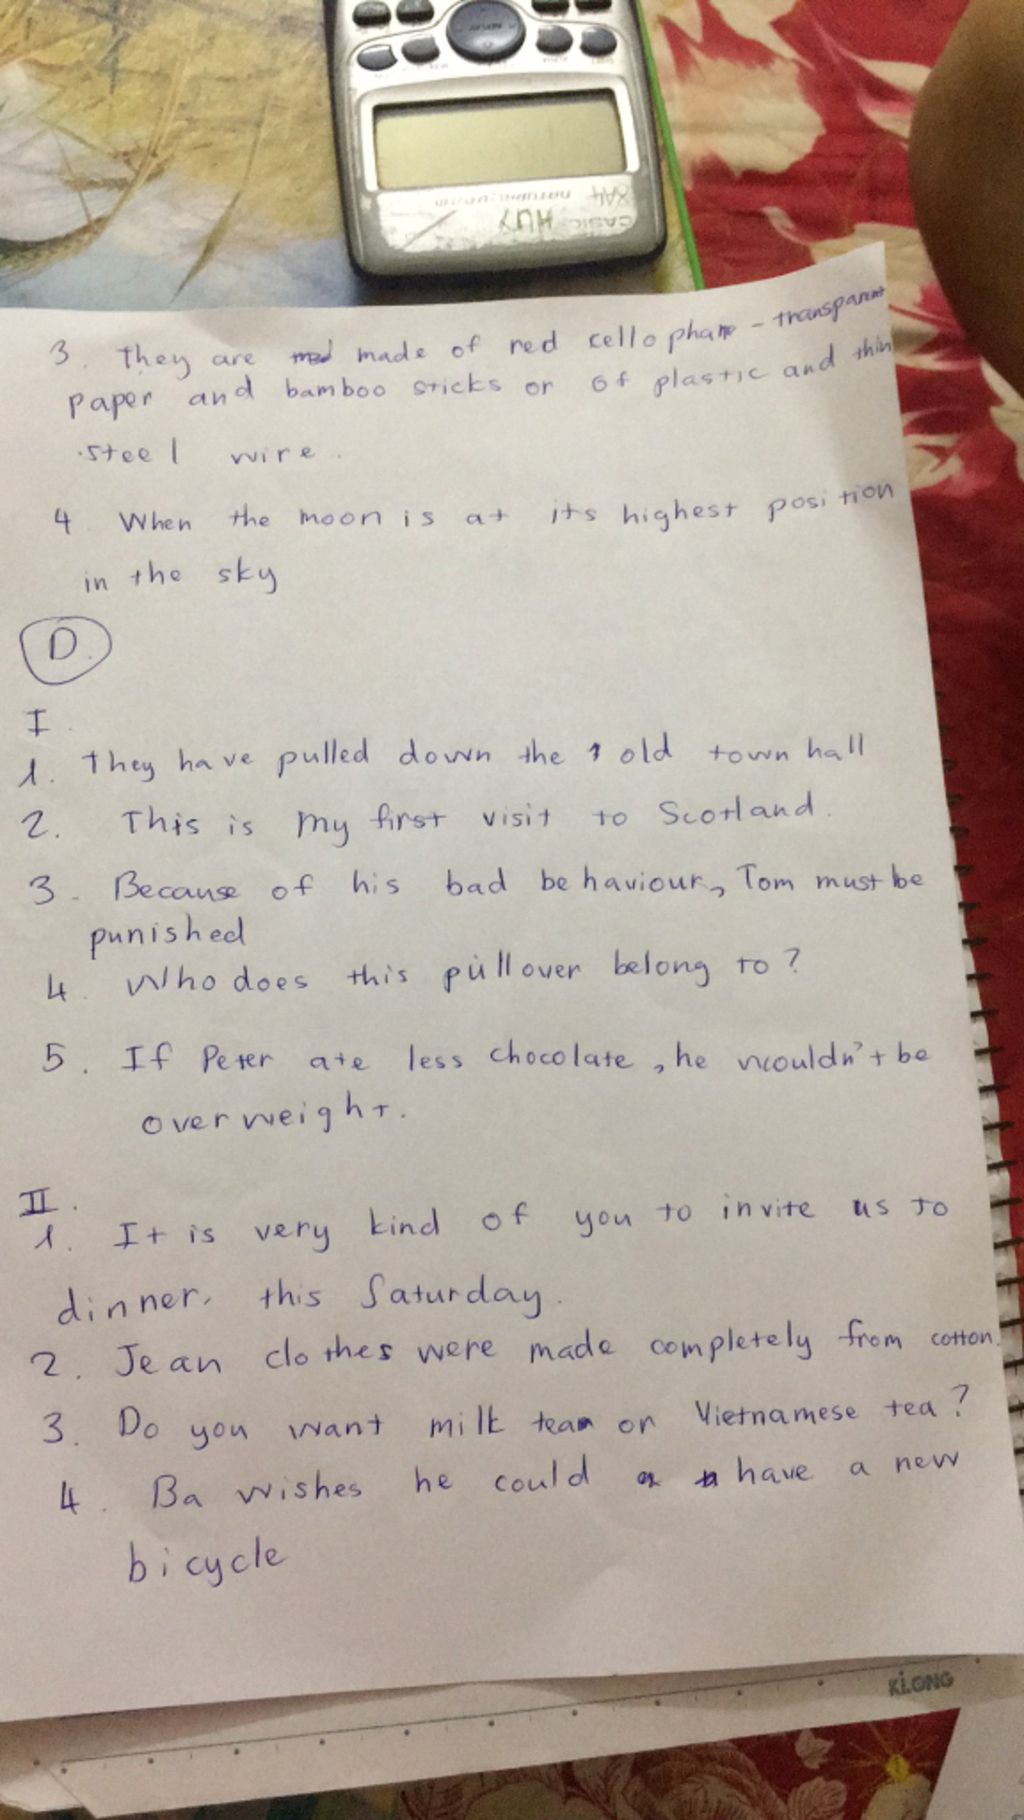 CASIO
HUY
3. They are made of red cellophane - transparent
paper and bamboo sticks or of plastic and thin
steel wire.
4 When the moon is at its highest position
in the sky
D.
I.
1. They have pulled down the old town hall
2. This is my first visit to Scotland.
3. Because of his bad behaviour, Tom must be
punished
4. Who does this pullover belong to?
5. If Peter ate less chocolate, he wouldn't be
overweight.
II.
1. It is very kind of you to invite us to
dinner, this Saturday.
2. Jean clothes were made completely from cotton.
3. Do you want milk tea or Vietnamese tea?
4. Ba wishes he could have a new
bicycle
KiLONG